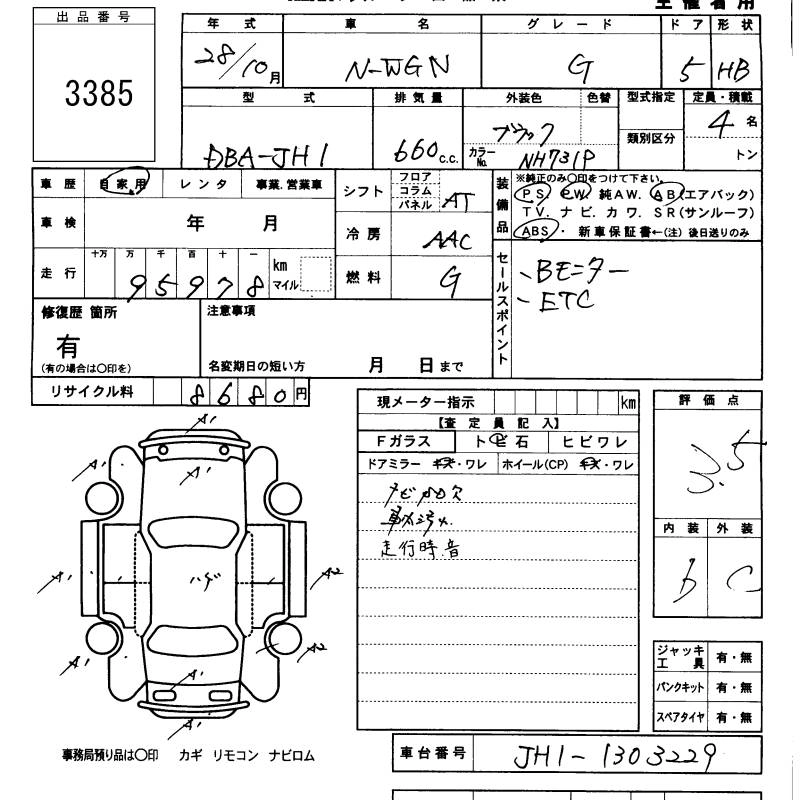 出品番号
3385
年式 車名 グレード ドア 形状
28/10月 N-WGN G 5 HB
型式 排気量 外装色 色替 型式指定 定員・積載
DBA-JH1 660c.c. ブラック カラーNo. NH731P 類別区分 4名 トン
車歴 自家用 レンタ 事業.営業車
シフト フロア コラム パネル AT
装備品 ※純正のみ〇印をつけて下さい。
PS. PW. 純AW. AB(エアバック)
TV. ナビ. カワ. SR(サンルーフ)
ABS・ 新車保証書←(注) 後日送りのみ
車検 年 月
冷房 AAC
走行 十万 万 千 百 十 一 km マイル
95978
燃料 G
セールスポイント
、Bモニター
、ETC
修復歴 箇所 注意事項
有
(有の場合は〇印を) 名変期日の短い方 月 日まで
リサイクル料 8680円
現メーター指示 km
【査定員記入】
Fガラス ト ビ 石 ヒビワレ
ドアミラー キズ・ワレ ホイール(CP) キズ・ワレ
走行時音
評価点
3.5
内装 外装
b C
ジャッキ工具 有・無
パンクキット 有・無
スペアタイヤ 有・無
A' A' A' A'
ハゲ
A' A' A2
A' A2
A'
A'
事務局預り品は〇印 カギ リモコン ナビロム
車台番号 JH1-1303229